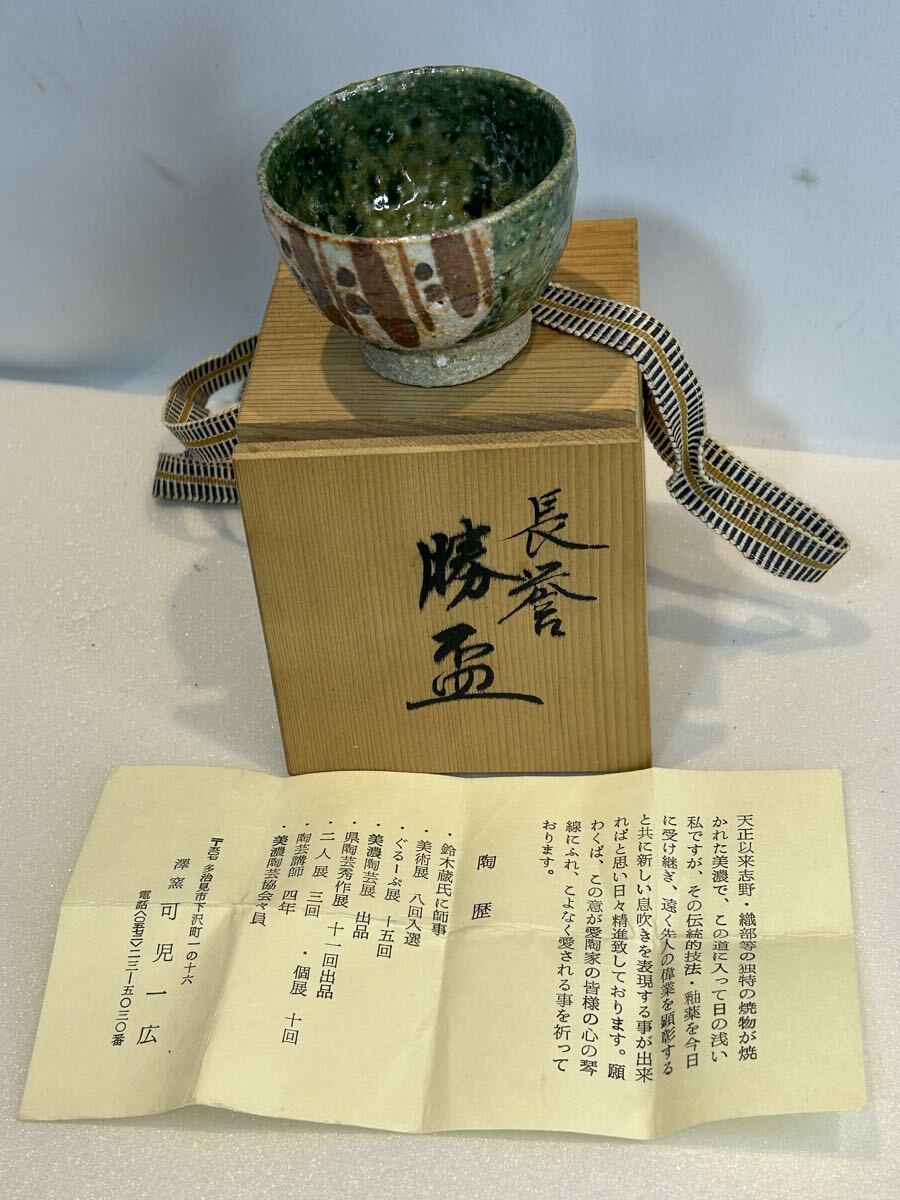 長誉
勝盃
天正以来志野・織部等の独特の焼物が焼
かれた美濃で、この道に入って日の浅い
私ですが、その伝統的技法・釉薬を今日
に受け継ぎ、遠く先人の偉業を顕彰する
と共に新しい息吹きを表現する事が出来
ればと思い日々精進致しております。願
わくば、この意が愛陶家の皆様の心の琴
線にふれ、こよなく愛される事を祈って
おります。
陶歴
・鈴木蔵氏に師事
・美術展 八回入選
・ぐるーぷ展 十五回
美濃陶芸展 出品
県陶芸秀作展 十一回出品
・二人展 三回 ・個展 十回
陶芸講師 四年
・美濃陶芸協会々員
多治見市下沢町一の十六
澤窯 可児一広
電話〈〇五七二〉二三―五〇三〇番